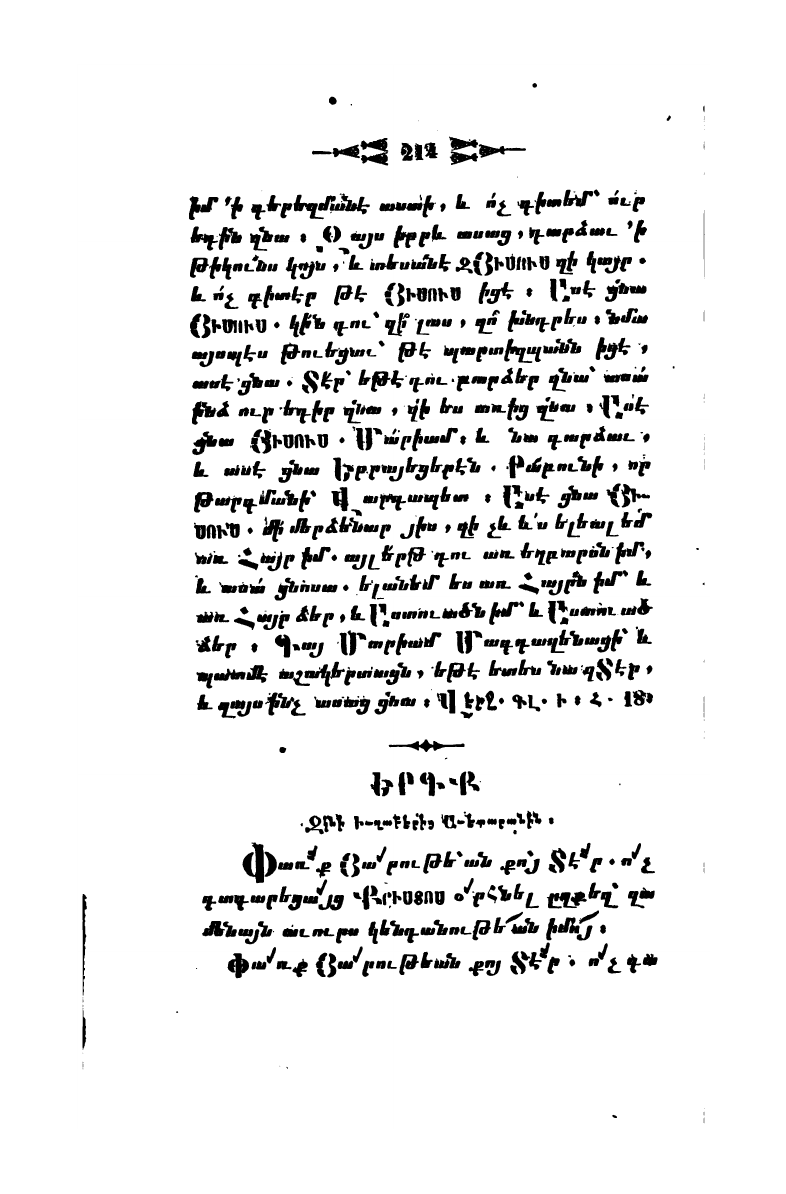 214
իմ ՚ի գերեզմանէ աստի, և ո՛չ գիտեմ՝ ո՛ւր
եդին զնա ։ Զայս իբրև ասաց, դարձաւ ՚ի
թիկո՛ւնս կոյս, և տեսանէ զՅԻՍՈՒՍ զի կայր ․
և ո՛չ գիտէր թէ ՅԻՍՈՒՍ իցէ ։ Ասէ ցնա
ՅԻՍՈՒՍ ․ կին դու՝ զի՞ լաս, զո՞ խնդրես ։ նմա
այսպէս թուեցաւ՝ թէ պարտիզպանն իցէ,
ասէ ցնա ․ Տէր՝ եթէ դու բարձեր զնա՝ ասա՛
ինձ ուր եդիր զնա, զի ես առից զնա ։ Ասէ
ցնա ՅԻՍՈՒՍ ․ Մարիամ ։ և նա դարձաւ,
և ասէ ցնա Եբրայեցերէն ․ Րաբունի, որ
թարգմանի՝ Վարդապետ ։ Ասէ ցնա ՅԻ-
ՍՈՒՍ ․ մի՛ մերձենար յիս, զի չև և՛ս ելեալ եմ
առ Հայր իմ ․ այլ ե՛րթ դու առ եղբարսն իմ,
և ասա՛ ցնոսա ․ ելանեմ ես առ Հայրն իմ՝ և
առ Հայր ձեր, և Աստուածն իմ՝ և Աստուած
ձեր ։ Գայ Մարիամ Մագդաղենացի՝ և
պատմէ աշակերտացն, եթէ ետես նա զՏէր,
և զայս ինչ ասաց ցնա ։ Վերջ․ Գլ․ Ի ։ Հ․ 18։
ԵՐԳ․Ք
Զինի Իւղաբերից Աւետարանին ։
Փառք Յարութեան քո՛յ Տէր ․ ո՛չ
դադարեցայց ՔՐԻՍՏՈՍ օրհնել ըզքեզ՝ զա
մենայն աւուրս կենդանութեան իմոյ ։
Փառք Յարութեան քոյ Տէր ․ ո՛չ դա